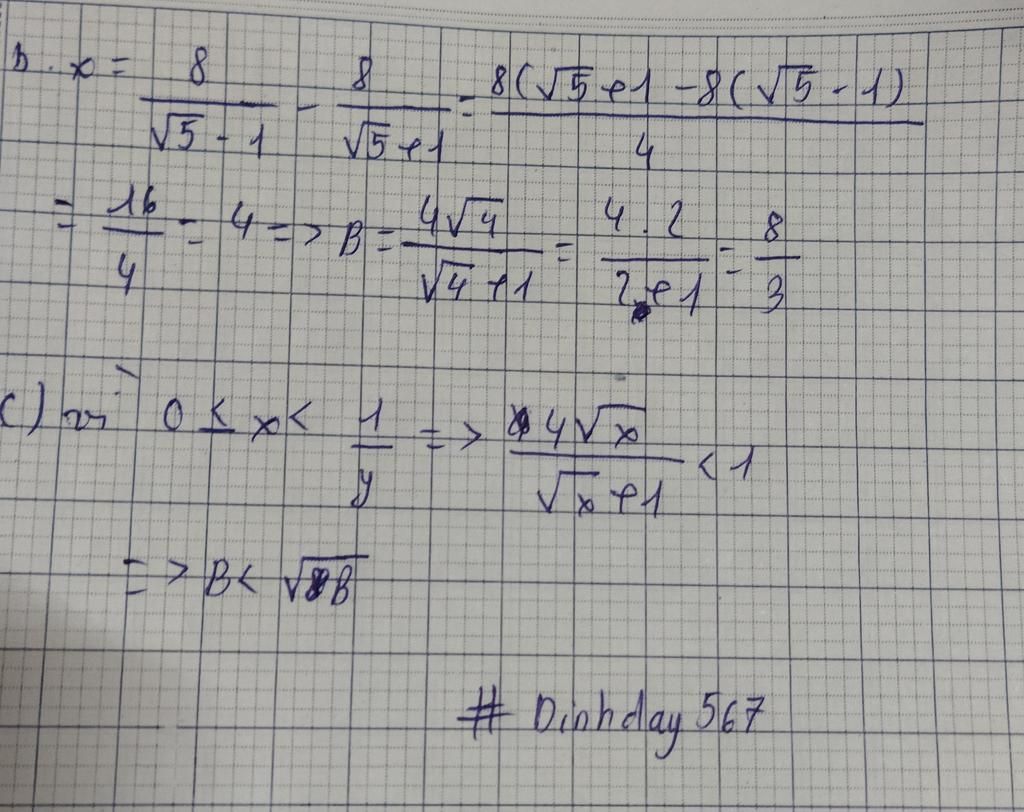 b. x = 8/(√5 - 1) - 8/(√5 + 1) = (8(√5 + 1 - 8(√5 - 1))/4
= 16/4 = 4 => B = 4√4/(√4 + 1) = 4.2/(2 + 1) = 8/3
c) vì 0 ≤ x < 1/y => 4√x/(√x + 1) < 1
=> B < √B
# Dinhday 567